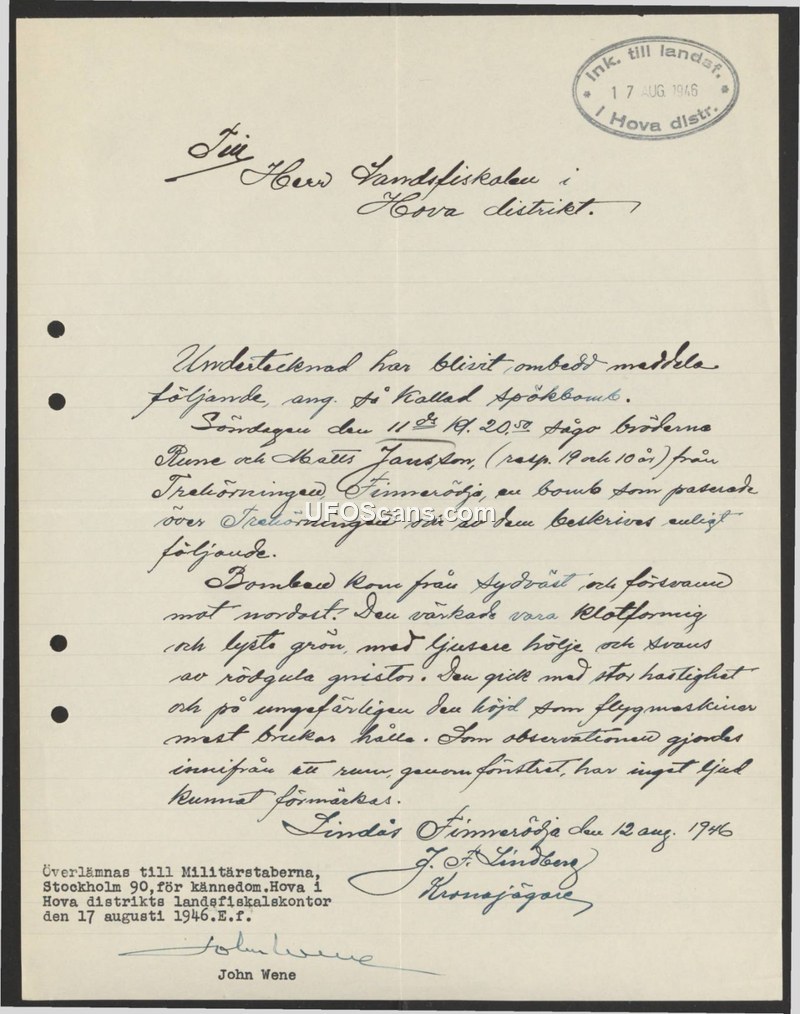 Ink. till landsf.
17 AUG. 1946
i Hova distr.
Till
Herr Landsfiskalen i
Hova distrikt.
Undertecknad har blivit ombedd meddela
följande, ang. så kallad spökbomb.
Söndagen den 11 de kl. 20,50 sågo bröderna
Rune och Matts Jansson, (resp. 19 och 10 år) från
Trehörningen, Finnerödja, en bomb som paserade
över Trehörningen och av dem beskrives enligt
UFOScans.com
följande.
Bomben kom från sydväst och försvann
mot nordost. Den värkade vara klotformig
och lyste grön, med ljusare hölje och svans
av rödgula gnistor. Den gick med stor hastighet
och på ungefärligen den höjd som flygmaskiner
mest brukar hålla. Som observationen gjordes
innifrån ett rum, genom fönstret, har inget ljud
kunnat förmärkas.
Lindås Finnerödja den 12 aug. 1946
J. F. Lindberg
Kronojägare
Överlämnas till Militärstaberna,
Stockholm 90,för kännedom.Hova i
Hova distrikts landsfiskalskontor
den 17 augusti 1946.E.f.
John Wene
John Wene